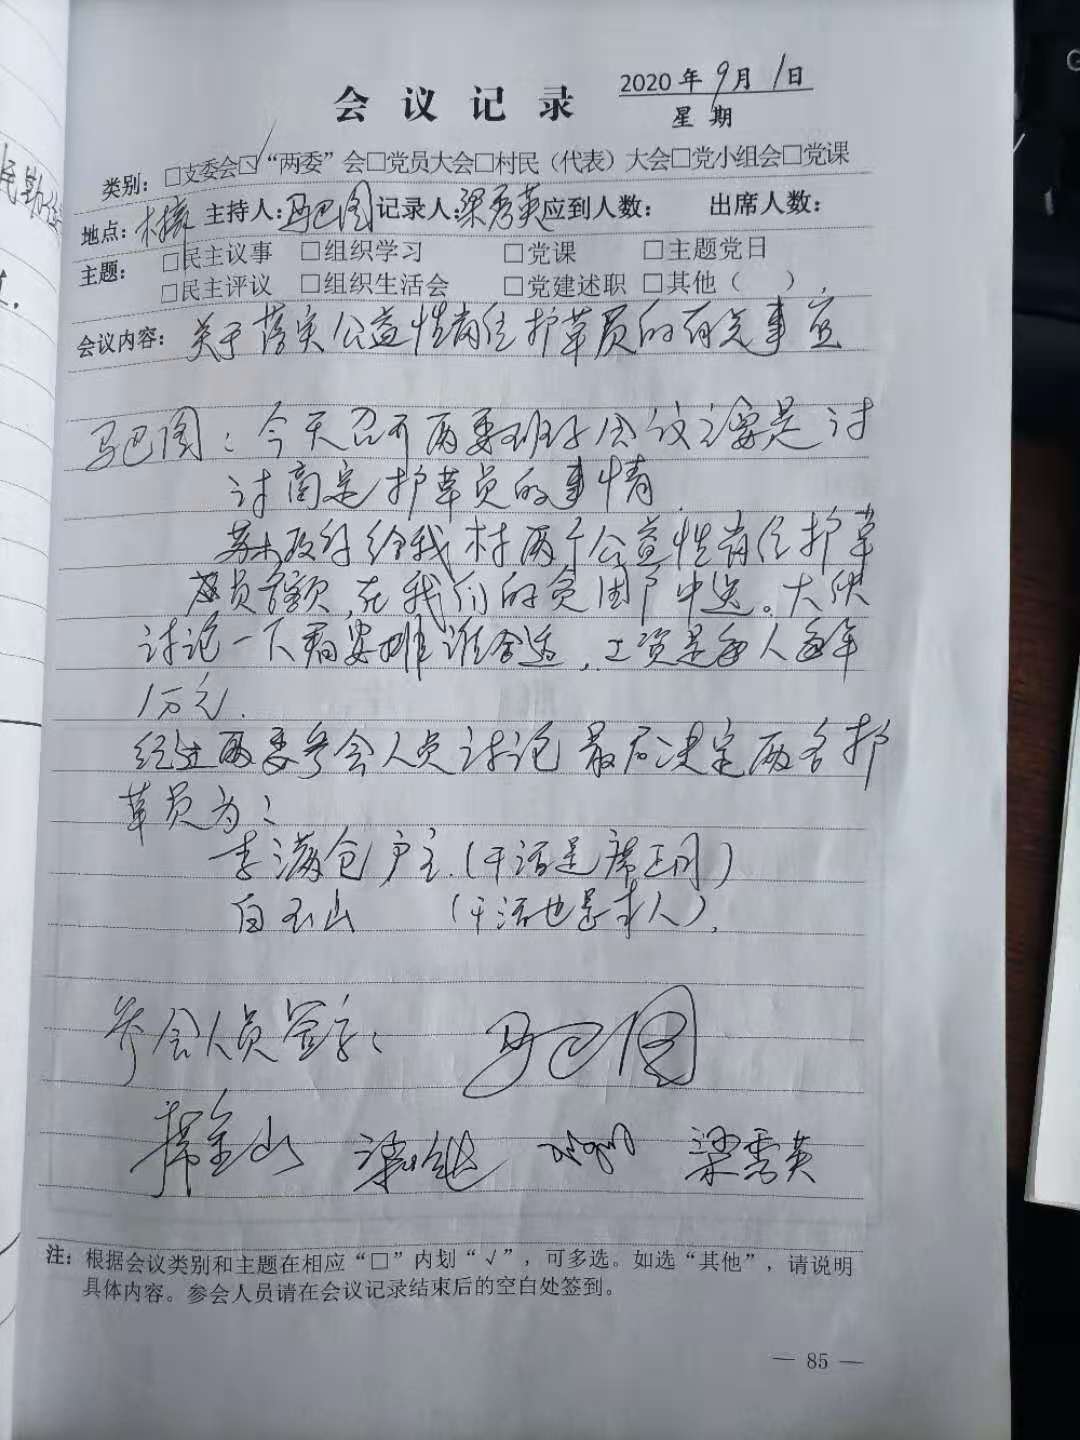 会议记录
2020年9月1日
星期
类别：□支委会☑“两委”会□党员大会□村民（代表）大会□党小组会□党课
地点： 主持人：马巴图 记录人：梁秀英 应到人数： 出席人数：
主题： □民主议事 □组织学习 □党课 □主题党日
□民主评议 □组织生活会 □党建述职 □其他（ ），
会议内容：关于落实公益性岗位护草员的有关事宜
马巴图：今天召开两委班子会议主要是讨
讨商定护草员的事情
苏木政府给我村两个公益性岗位护草
员名额，在我们的贫困户中选。大伙
讨论一下看安排谁合适，工资是每人每年
1万元.
经过两委参会人员讨论最后决定两名护
草员为：
李满仓户主.(干活是席正月)
白玉山 (干活也是本人).
参会人员签字：
马巴图
金山 梁 梁秀英
注：根据会议类别和主题在相应“□”内划“√”，可多选。如选“其他”，请说明
具体内容。参会人员请在会议记录结束后的空白处签到。
— 85 —